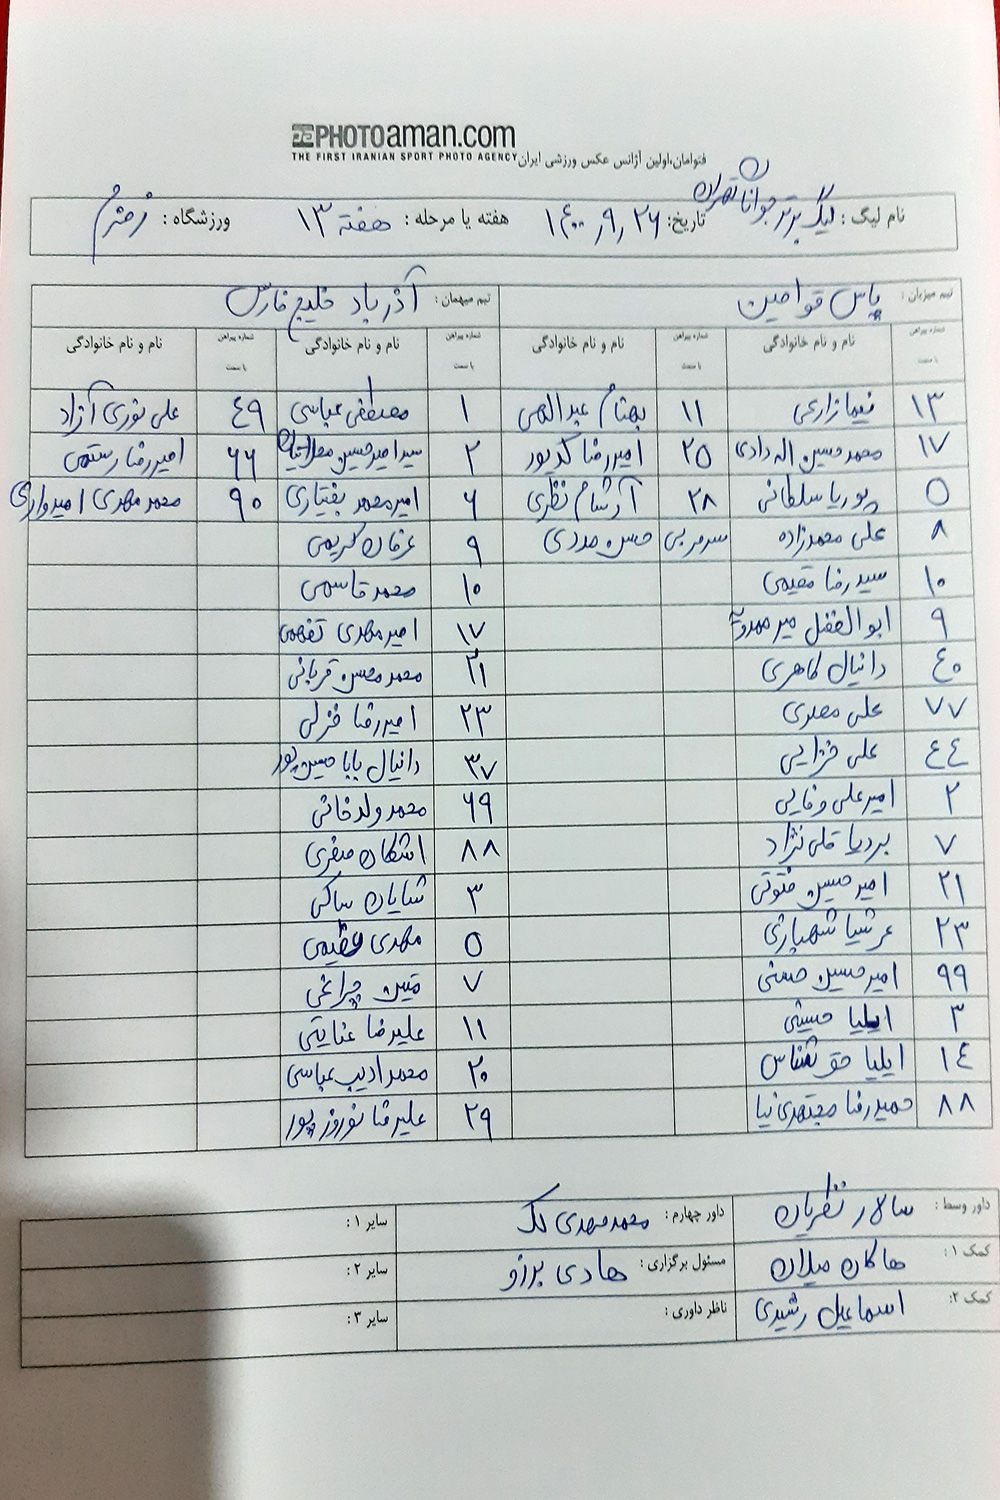 PHOTOaman.com
THE FIRST IRANIAN SPORT PHOTO AGENCY
فتوامان،اولین آژانس عکس ورزشی ایران
نام لیگ : لیگ برتر جوانان تهران تاریخ: ۱۴۰۰٫۹٫۲۶ هفته یا مرحله : هفته ۱۳ ورزشگاه :
تیم میزبان : پاس قوامین تیم میهمان : آذرباد خلیج فارس
شماره پیراهن یا سمت نام و نام خانوادگی شماره پیراهن یا سمت نام و نام خانوادگی شماره پیراهن یا سمت نام و نام خانوادگی شماره پیراهن یا سمت نام و نام خانوادگی
۱۳ نیما زارعی ۱۱ بهنام عبدالهی ۱ مصطفی عباسی ۴۹ علی نوری آزاد
۱۷ محمدحسین اله دادی ۲۵ امیررضا کدپور ۲ سید امیرحسین ۶۶ امیررضا رستمی
۵ پوریا سلطانی ۲۸ آرشام نظری ۶ امیرمحمد بختیاری ۹۰ محمد مهدی امیدواری
۸ علی محمدزاده سرمربی حسن مددی ۹ عرفان کریمی
۱۰ سیدرضا مقیمی ۱۰ محمد قاسمی
۹ ابوالفضل میر ۱۷ امیرمهدی تفهمی
۴۰ دانیال طاهری ۲۱ محمد محسن قربانی
۷۷ علی مهدی ۲۳ امیررضا خزلی
۴۴ علی خزایی ۳۷ دانیال بابا حسین پور
۲ امیرعلی وفایی ۶۹ محمد ولدخانی
۷ بردیا قلی نژاد ۸۸ اشکان صفری
۲۱ امیرحسین فتوتی ۳ شایان ساکی
۲۳ عرشیا شهبازی ۵ مهدی عظیمی
۹۹ امیرحسین حسنی ۷ متین چراغی
۳ ایلیا حبیبی ۱۱ علیرضا عنایتی
۱۴ ایلیا حق شناس ۲۰ محمد ادیب عباسی
۸۸ حمیدرضا مجتهدی نیا ۲۹ علیرضا نوروزپور
داور وسط : سالار نظریان داور چهارم : محمدمهدی لک سایر ۱ :
کمک ۱ : هاکان میلان مسئول برگزاری : هادی برزو سایر ۲ :
کمک ۲: اسماعیل رشیدی ناظر داوری : سایر ۳ :